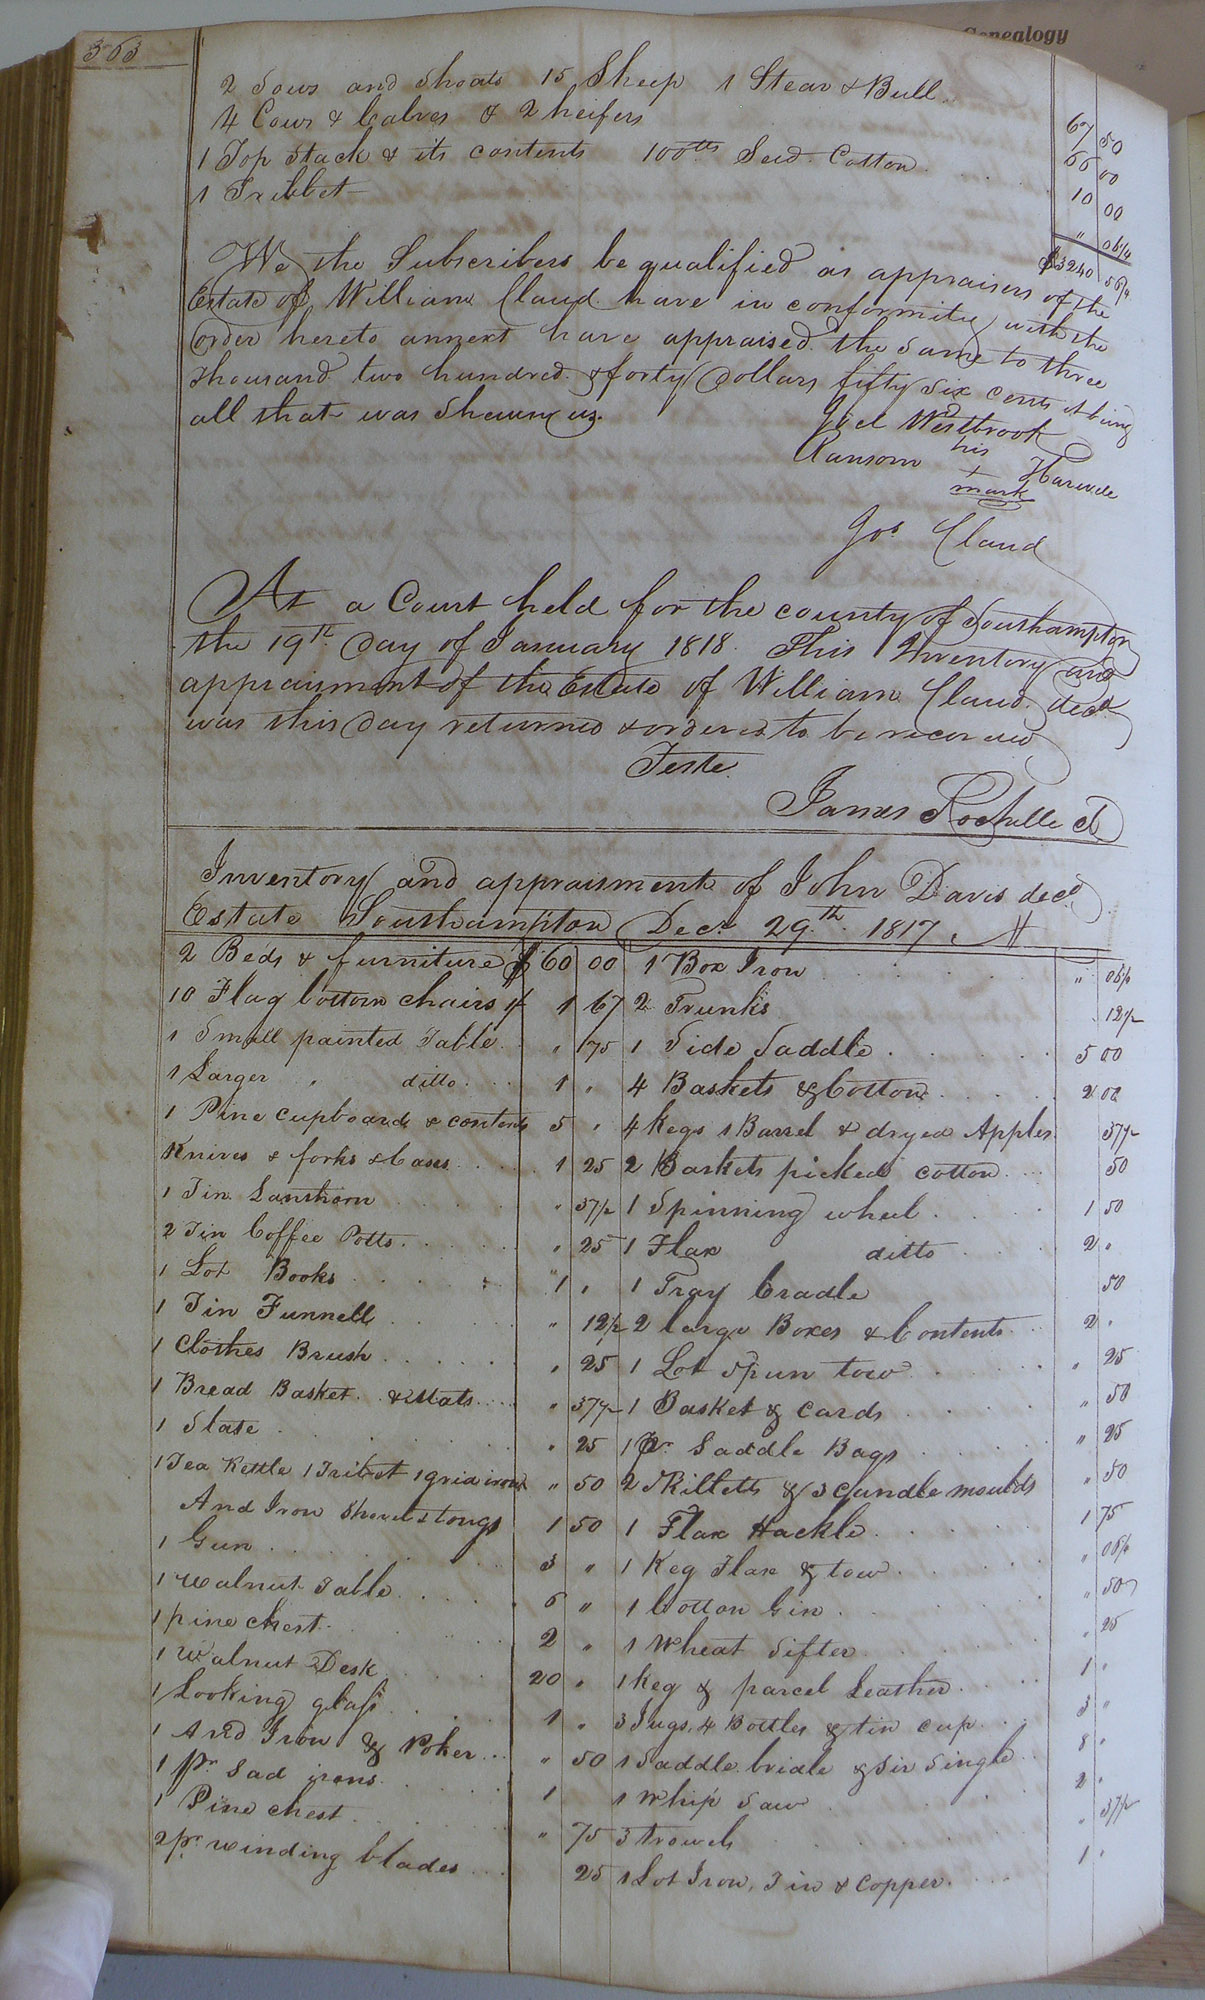 363
Genealogy
2 Sows and Shoats 15 Sheep 1 Stear & Bull 67 50
4 Cows & Calves & 2 heifers 66 00
1 Top Stack & its contents 100tts Seed Cotton 10 00
1 Tribbet " 06 1/4
$3240 56 1/4
We the Subscribers be qualified as appraisers of the
Estate of William Claud have in conformity with the
order hereto annext have appraised the Same to three
thousand two hundred & forty Dollars fifty Six cents it being
all that was Shewn us.
Joel Westbrook
his
Ransom +
mark
Jos Claud
At a Court held for the county of Southampton
the 19th Day of January 1818. This Inventory and
appraisment of the Estate of William Claud decd
was this Day returned & ordered to be recorded
Teste.
James Rochelle cl
Inventory and appraisment of John Davis decd
Estate Southampton Decr 29th 1817.
2 Beds & furniture $ 60 00 1 Box Iron " 06 1/4
10 Flag bottom chairs 1/ 1 67 2 Trunks 12 1/2
1 Small painted Table " 75 1 Side Saddle 5 00
1 Larger " ditto 1 " 4 Baskets & Cotton 2 00
1 Pine Cupboard & contents 5 " 4 kegs 1 Barrel & dryed Apples 37 1/2
Knives & forks & Cases 1 25 2 Baskets picked cotton 50
1 Tin Lanthorn " 37 1/2 1 Spinning wheel 1 50
2 Tin Coffee Potts " 25 1 Flax ditto 2 "
1 Lot Books 1 " 1 Tray Cradle 50
1 Tin Funnell " 12 1/2 2 large Boxes & Contents 2 "
1 Clothes Brush " 25 1 Lot Spun tow " 25
1 Bread Basket & Mats " 37 1/2 1 Basket & Cards " 50
1 Slate " 25 1 Pr Saddle Bags " 25
1 Tea Kettle 1 Tribet 1 grid iron " 50 2 Skilletts & 3 Cundle moulds " 50
And Iron Shovel & tongs 1 50 1 Flax Hackle 1 75
1 Gun 3 " 1 Keg Flax & tow " 06 1/4
1 Walnut Table 6 " 1 Cotton Gin " 50
1 pine chest 2 " 1 Wheat Sifter " 25
1 Walnut Desk 20 " 1 Keg & parcel Leather 1 "
1 Looking glass 1 " 3 Jugs, 4 Bottles & tin cup 3 "
1 And Iron & Poker " 50 1 Saddle bridle & Sir Single 8 "
1 Pr Sad irons 1 1 Whip Saw 2 "
1 Pine Chest " 75 3 trowels " 37 1/2
2 pr winding blades 25 1 Lot Iron, Tin & Copper 1 "